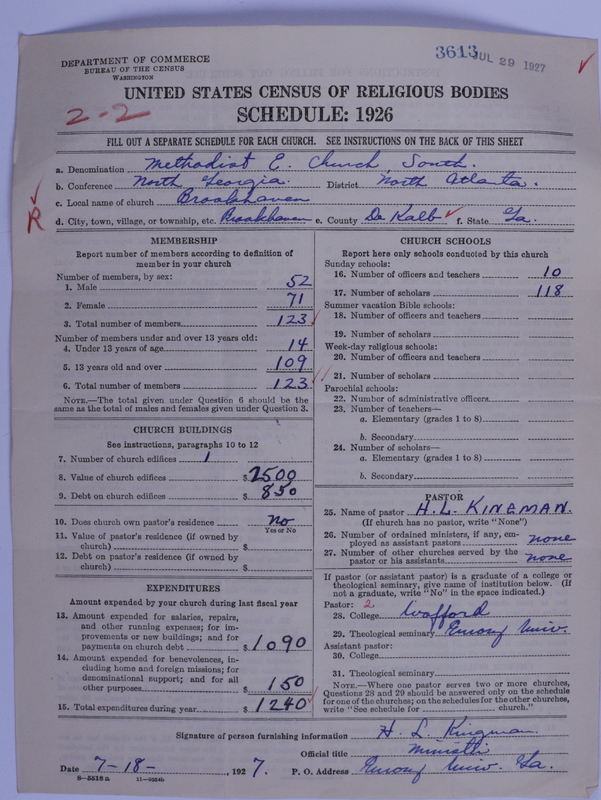 DEPARTMENT OF COMMERCE
BUREAU OF THE CENSUS
WASHINGTON
3613 JUL 29 1927
UNITED STATES CENSUS OF RELIGIOUS BODIES
SCHEDULE: 1926
2-2
FILL OUT A SEPARATE SCHEDULE FOR EACH CHURCH. SEE INSTRUCTIONS ON THE BACK OF THIS SHEET
a. Denomination Methodist E. Church, South.
b. Conference North Georgia. District North Atlanta.
c. Local name of church Brookhaven
R
d. City, town, village, or township, etc. Brookhaven e. County De Kalb f. State Ga.
MEMBERSHIP
Report number of members according to definition of
member in your church
Number of members, by sex:
1. Male 52
2. Female 71
3. Total number of members 123
Number of members under and over 13 years old:
4. Under 13 years of age 14
5. 13 years old and over 109
6. Total number of members 123
NOTE.—The total given under Question 6 should be
same as the total of males and females given under Question 3.
CHURCH BUILDINGS
See instructions, paragraphs 10 to 12
7. Number of church edifices 1
8. Value of church edifices $ 2500
9. Debt on church edifices $ 850
10. Does church own pastor's residence no
Yes or No
11. Value of pastor's residence (if owned by
church) $
12. Debt on pastor's residence (if owned by
church) $
EXPENDITURES
Amount expended by your church during last fiscal year
13. Amount expended for salaries, repairs,
and other running expenses; for im-
provements or new buildings; and for
payments on church debt $ 1090
14. Amount expended for benevolences, in-
cluding home and foreign missions; for
denominational support; and for all
other purposes $ 150
15. Total expenditures during year $ 1240
CHURCH SCHOOLS
Report here only schools conducted by this church
Sunday schools:
16. Number of officers and teachers 10
17. Number of scholars 118
Summer vacation Bible schools:
18. Number of officers and teachers
19. Number of scholars
Week-day religious schools:
20. Number of officers and teachers
21. Number of scholars
Parochial schools:
22. Number of administrative officers
23. Number of teachers—
a. Elementary (grades 1 to 8)
b. Secondary
24. Number of scholars—
a. Elementary (grades 1 to 8)
b. Secondary
PASTOR
25. Name of pastor H. L. KINGMAN.
(If church has no pastor, write "None")
26. Number of ordained ministers, if any, em-
ployed as assistant pastors none
27. Number of other churches served by the
pastor or his assistants none
If pastor (or assistant pastor) is a graduate of a college or
theological seminary, give name of institution below. (If
not a graduate, write "No" in the space indicated.)
Pastor: 2
28. College Wofford
29. Theological seminary Emory Univ.
Assistant pastor:
30. College
31. Theological seminary
NOTE.—Where one pastor serves two or more churches,
Questions 28 and 29 should be answered only on the schedule
for one of the churches; on the schedules for the other churches,
write "See schedule for church."
Signature of person furnishing information H. L. Kingman.
Official title Minister
Date 7-18-, 1927. P. O. Address Emory Univ. Ga.
8—5518 a 11—9284b